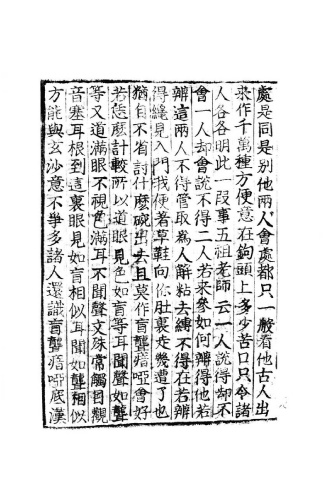 處是同是別他兩人會處都只一般看他古人出
來作千萬種方便意在鉤頭上多少苦口只令諸
人各各明此一段事五祖老師云一人說得却不
會一人却會說不得二人若來參如何辨得他若
辨這兩人不得管取為人解粘去縛不得在若辨
得纔見入門我便著草鞋向你肚裏走幾遭了也
猶自不省討什麼碗出去且莫作盲聾瘖啞會好
若恁麼計較所以道眼見色如盲等耳聞聲如聾
等又道滿眼不視色滿耳不聞聲文殊常觸目觀
音塞耳根到這裏眼見如盲相似耳聞如聾相似
方能與玄沙意不爭多諸人還識盲聾瘖啞底漢